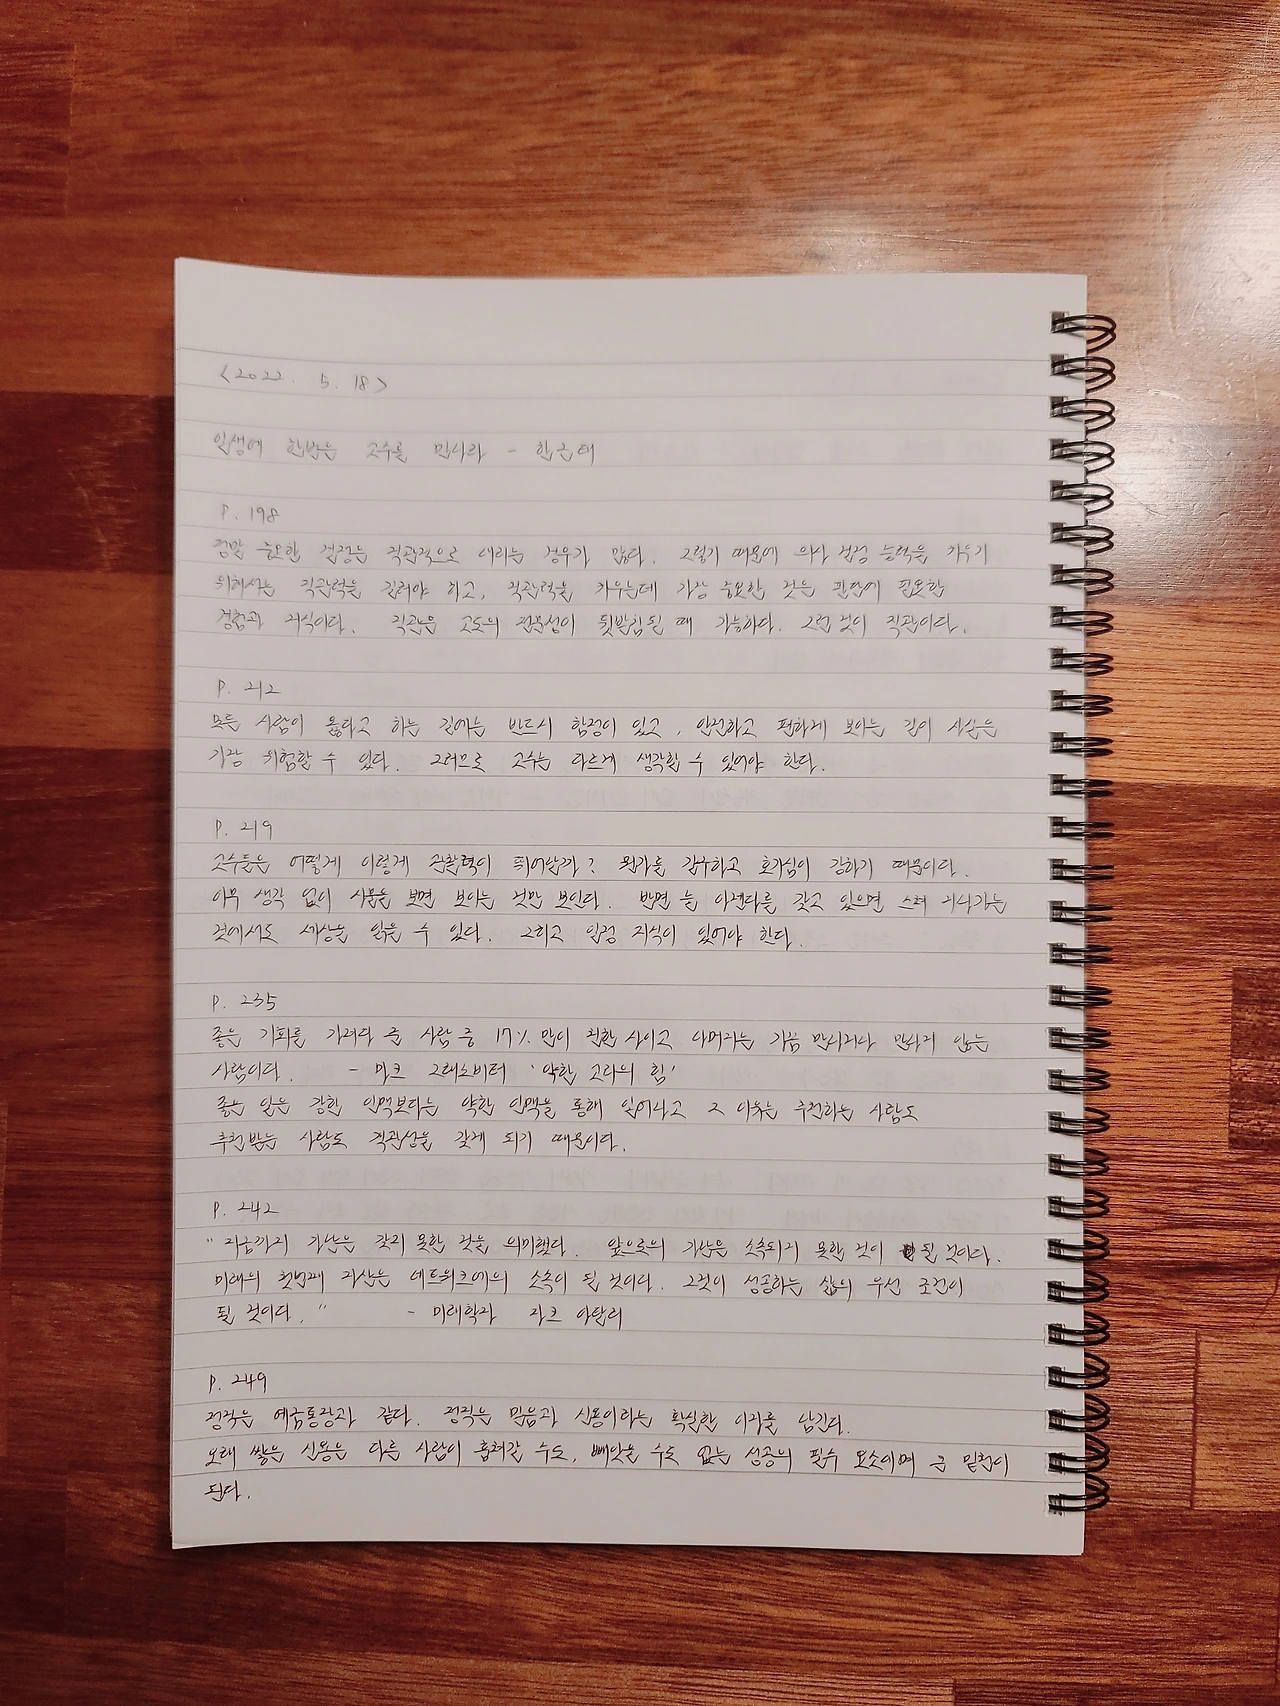 <2022. 5. 18>
일생에 한번은 고수를 만나라 - 한근태
P. 198
정말 중요한 결정은 직관적으로 내리는 경우가 많다. 그렇기 때문에 의사 결정 능력을 키우기
위해서는 직관력을 길러야 하고, 직관력을 키우는데 가장 중요한 것은 판단에 필요한
경험과 지식이다. 직관은 고도의 전문성이 뒷받침될 때 가능하다. 그런 것이 직관이다.
P. 212
모든 사람이 옳다고 하는 길에는 반드시 함정이 있고, 안전하고 편하게 보이는 길이 사실은
가장 위험할 수 있다. 그러므로 고수는 다르게 생각할 수 있어야 한다.
P. 219
고수들은 어떻게 이렇게 관찰력이 뛰어날까? 뭔가를 갈구하고 호기심이 강하기 때문이다.
아무 생각 없이 사물을 보면 보이는 것만 보인다. 반면 늘 아젠다를 갖고 있으면 스쳐 지나가는
것에서도 세상을 읽을 수 있다. 그리고 일정 지식이 있어야 한다.
P. 235
좋은 기회를 가져다 준 사람 중 17% 만이 친한 사이고 나머지는 가끔 만나거나 만나지 않는
사람이다. - 마크 그래노비터 '약한 고리의 힘'
좋은 일은 강한 인맥보다는 약한 인맥을 통해 일어나고 그 이유는 추천하는 사람도
추천받는 사람도 객관성을 갖게 되기 때문이다.
P. 242
" 지금까지 가난은 갖지 못한 것을 의미했다. 앞으로의 가난은 소속되지 못한 것이 될 것이다.
미래의 첫번째 자산은 네트워크에의 소속이 될 것이다. 그것이 성공하는 삶의 우선 조건이
될 것이다. " - 미래학자 자크 아탈리
P. 249
정직은 예금통장과 같다. 정직은 믿음과 신용이라는 확실한 이자를 남긴다.
오래 쌓은 신용은 다른 사람이 훔쳐갈 수도, 빼앗을 수도 없는 성공의 필수 요소이며 큰 밑천이
된다.